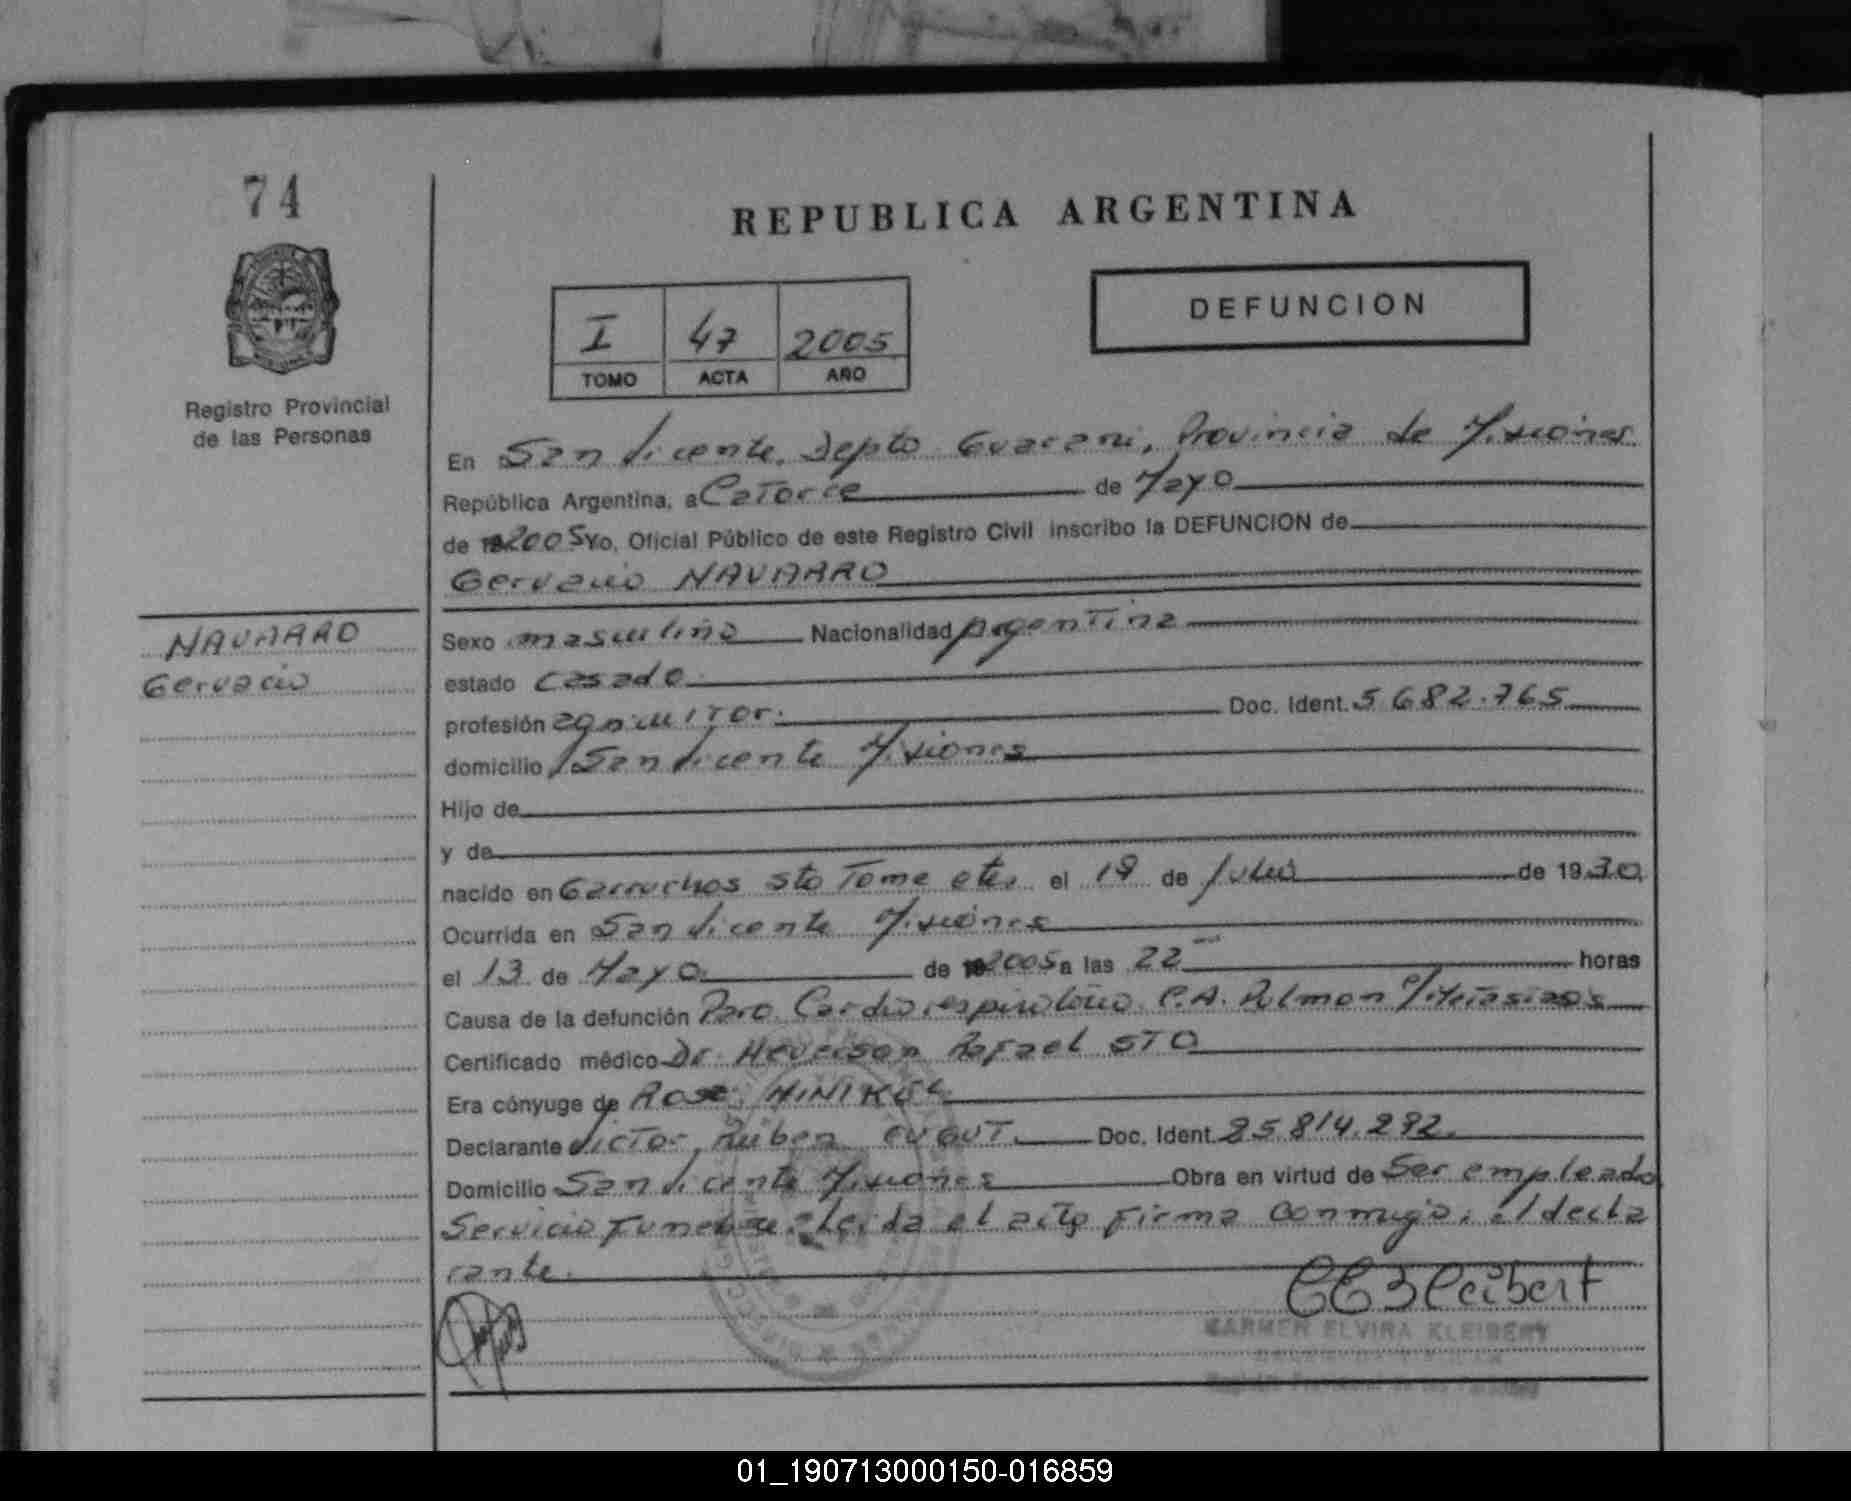 74
REPUBLICA ARGENTINA
DEFUNCION
I 47 2005
TOMO ACTA AÑO
Registro Provincial
de las Personas
En San Vicente, Depto Guarani, Provincia de Misiones
República Argentina, a Catorce de Mayo
de 2005 Yo, Oficial Público de este Registro Civil inscribo la DEFUNCION de
Gervacio NAVARRO
NAVARRO
Gervacio
Sexo masculino Nacionalidad Argentina
estado casado.
profesión agricultor. Doc. Ident. 5682.765
domicilio San Vicente Misiones
Hijo de
y de
nacido en Garruchos Sto Tome ctes el 19 de Julio de 1930
Ocurrida en San Vicente Misiones
el 13 de Mayo de 2005 a las 22 horas
Causa de la defunción Paro Cardio respiratorio C.A. Pulmon
Certificado médico Dr. Heverson Rafael STO
Era cónyuge de Rosa
Declarante Victor Ruben Doc. Ident. 25.814.292.
Domicilio San Vicente Misiones Obra en virtud de Ser empleado
Servicio Funebre. Leida el acta firma conmigo, el decla
rante.
CARMEN ELVIRA KLEIBERT
01_190713000150-016859